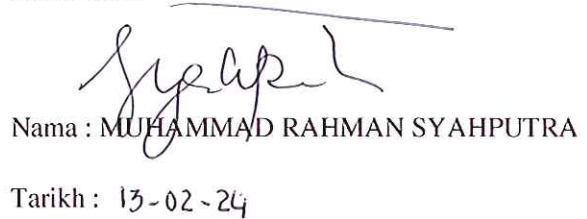 Nama : MUHAMMAD RAHMAN SYAHPUTRA
Tarikh : 13-02-24